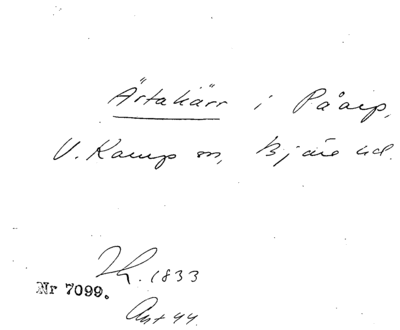 Ärtakärr i Påarp,
V. Karup sn, Bjäre hd.
Th. 1833
Nr 7099.
Ant 44